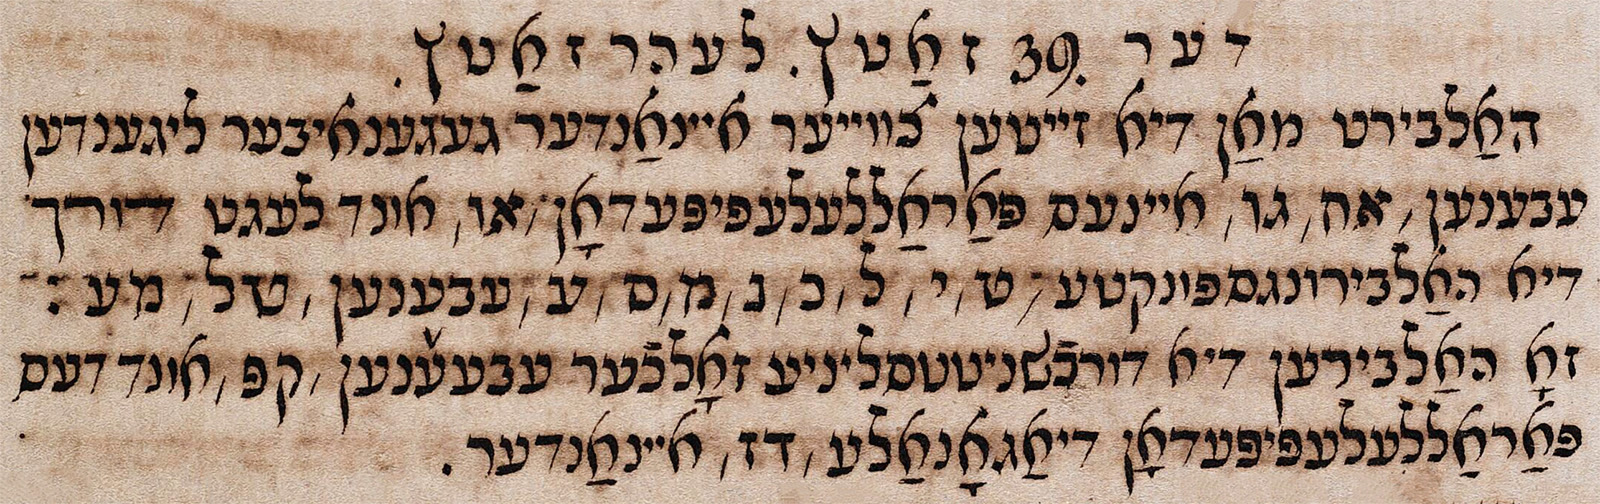 דער 39. זאַטץ. לעהרזאַטץ.
האַלבירט מאַן דיא זייטען צווייער איינאַנדער געגענאיבער ליגענדען
עבענען, אח, גו, איינעס פּאַראַללעלעפּיפּעדאָן, או, אונד לעגט דורך
דיא האַלבירונגספונקטע, ט, י, ל, כ, נ, מ, ס, ע, עבענען, טל, מע:
זאָ האַלבירען דיא דורכֿשניטטסליניע זאָלכֿער עבעענען, קפ, אונד דעס
פּאַראַללעלעפּיפּעדאָן דיאַגאָנאַלע, דז, איינאַנדער.